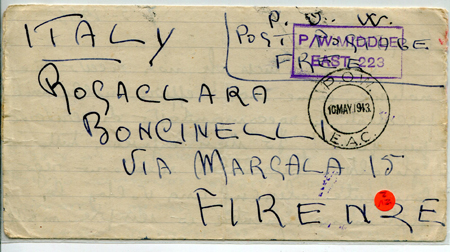 ITALY
P. O. W.
POST
FREE
P/W MIDDLE
EAST 223
P.O.W.
10 MAY 1943
E.A.C.
ROSACLARA
BONCINELLI
VIA MARSALA 15
FIRENZE